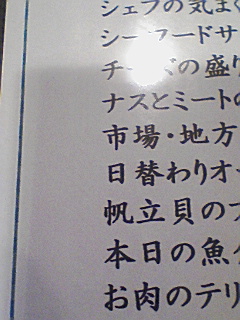 シェフの気まぐ
シーフードサ
チーズの盛り
ナスとミートの
市場・地方
日替わりオ
帆立貝の
本日の魚
お肉のテリ